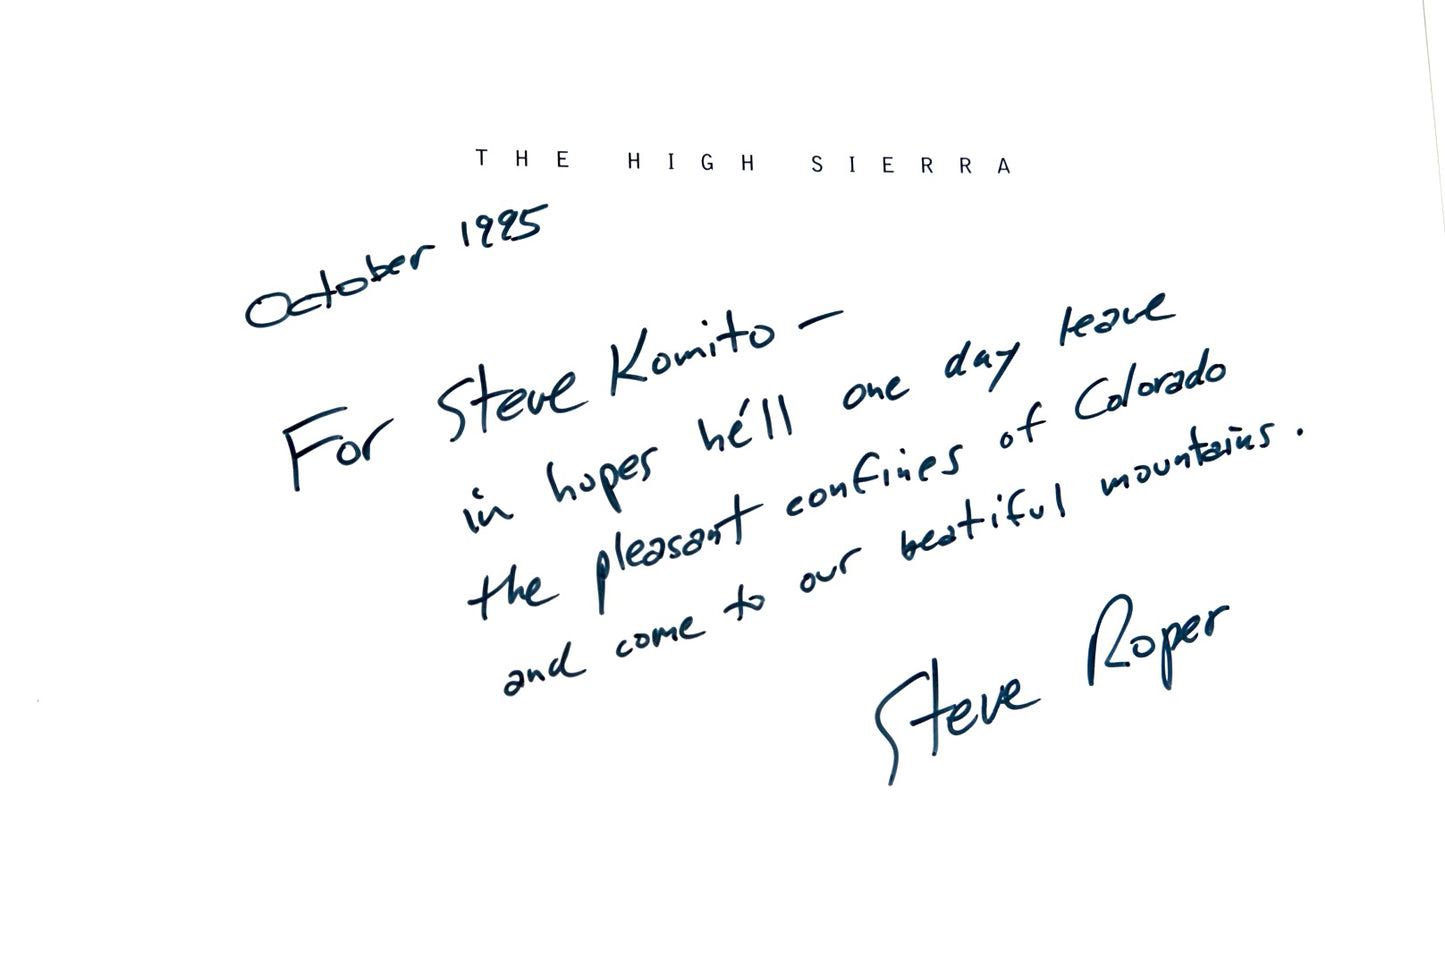 THE HIGH SIERRA
October 1995
For Steve Komito –
in hopes he'll one day leave
the pleasant confines of Colorado
and come to our beatiful mountains.
Steve Roper